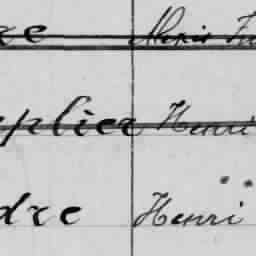 re Marie
plier Henri
dre Henri